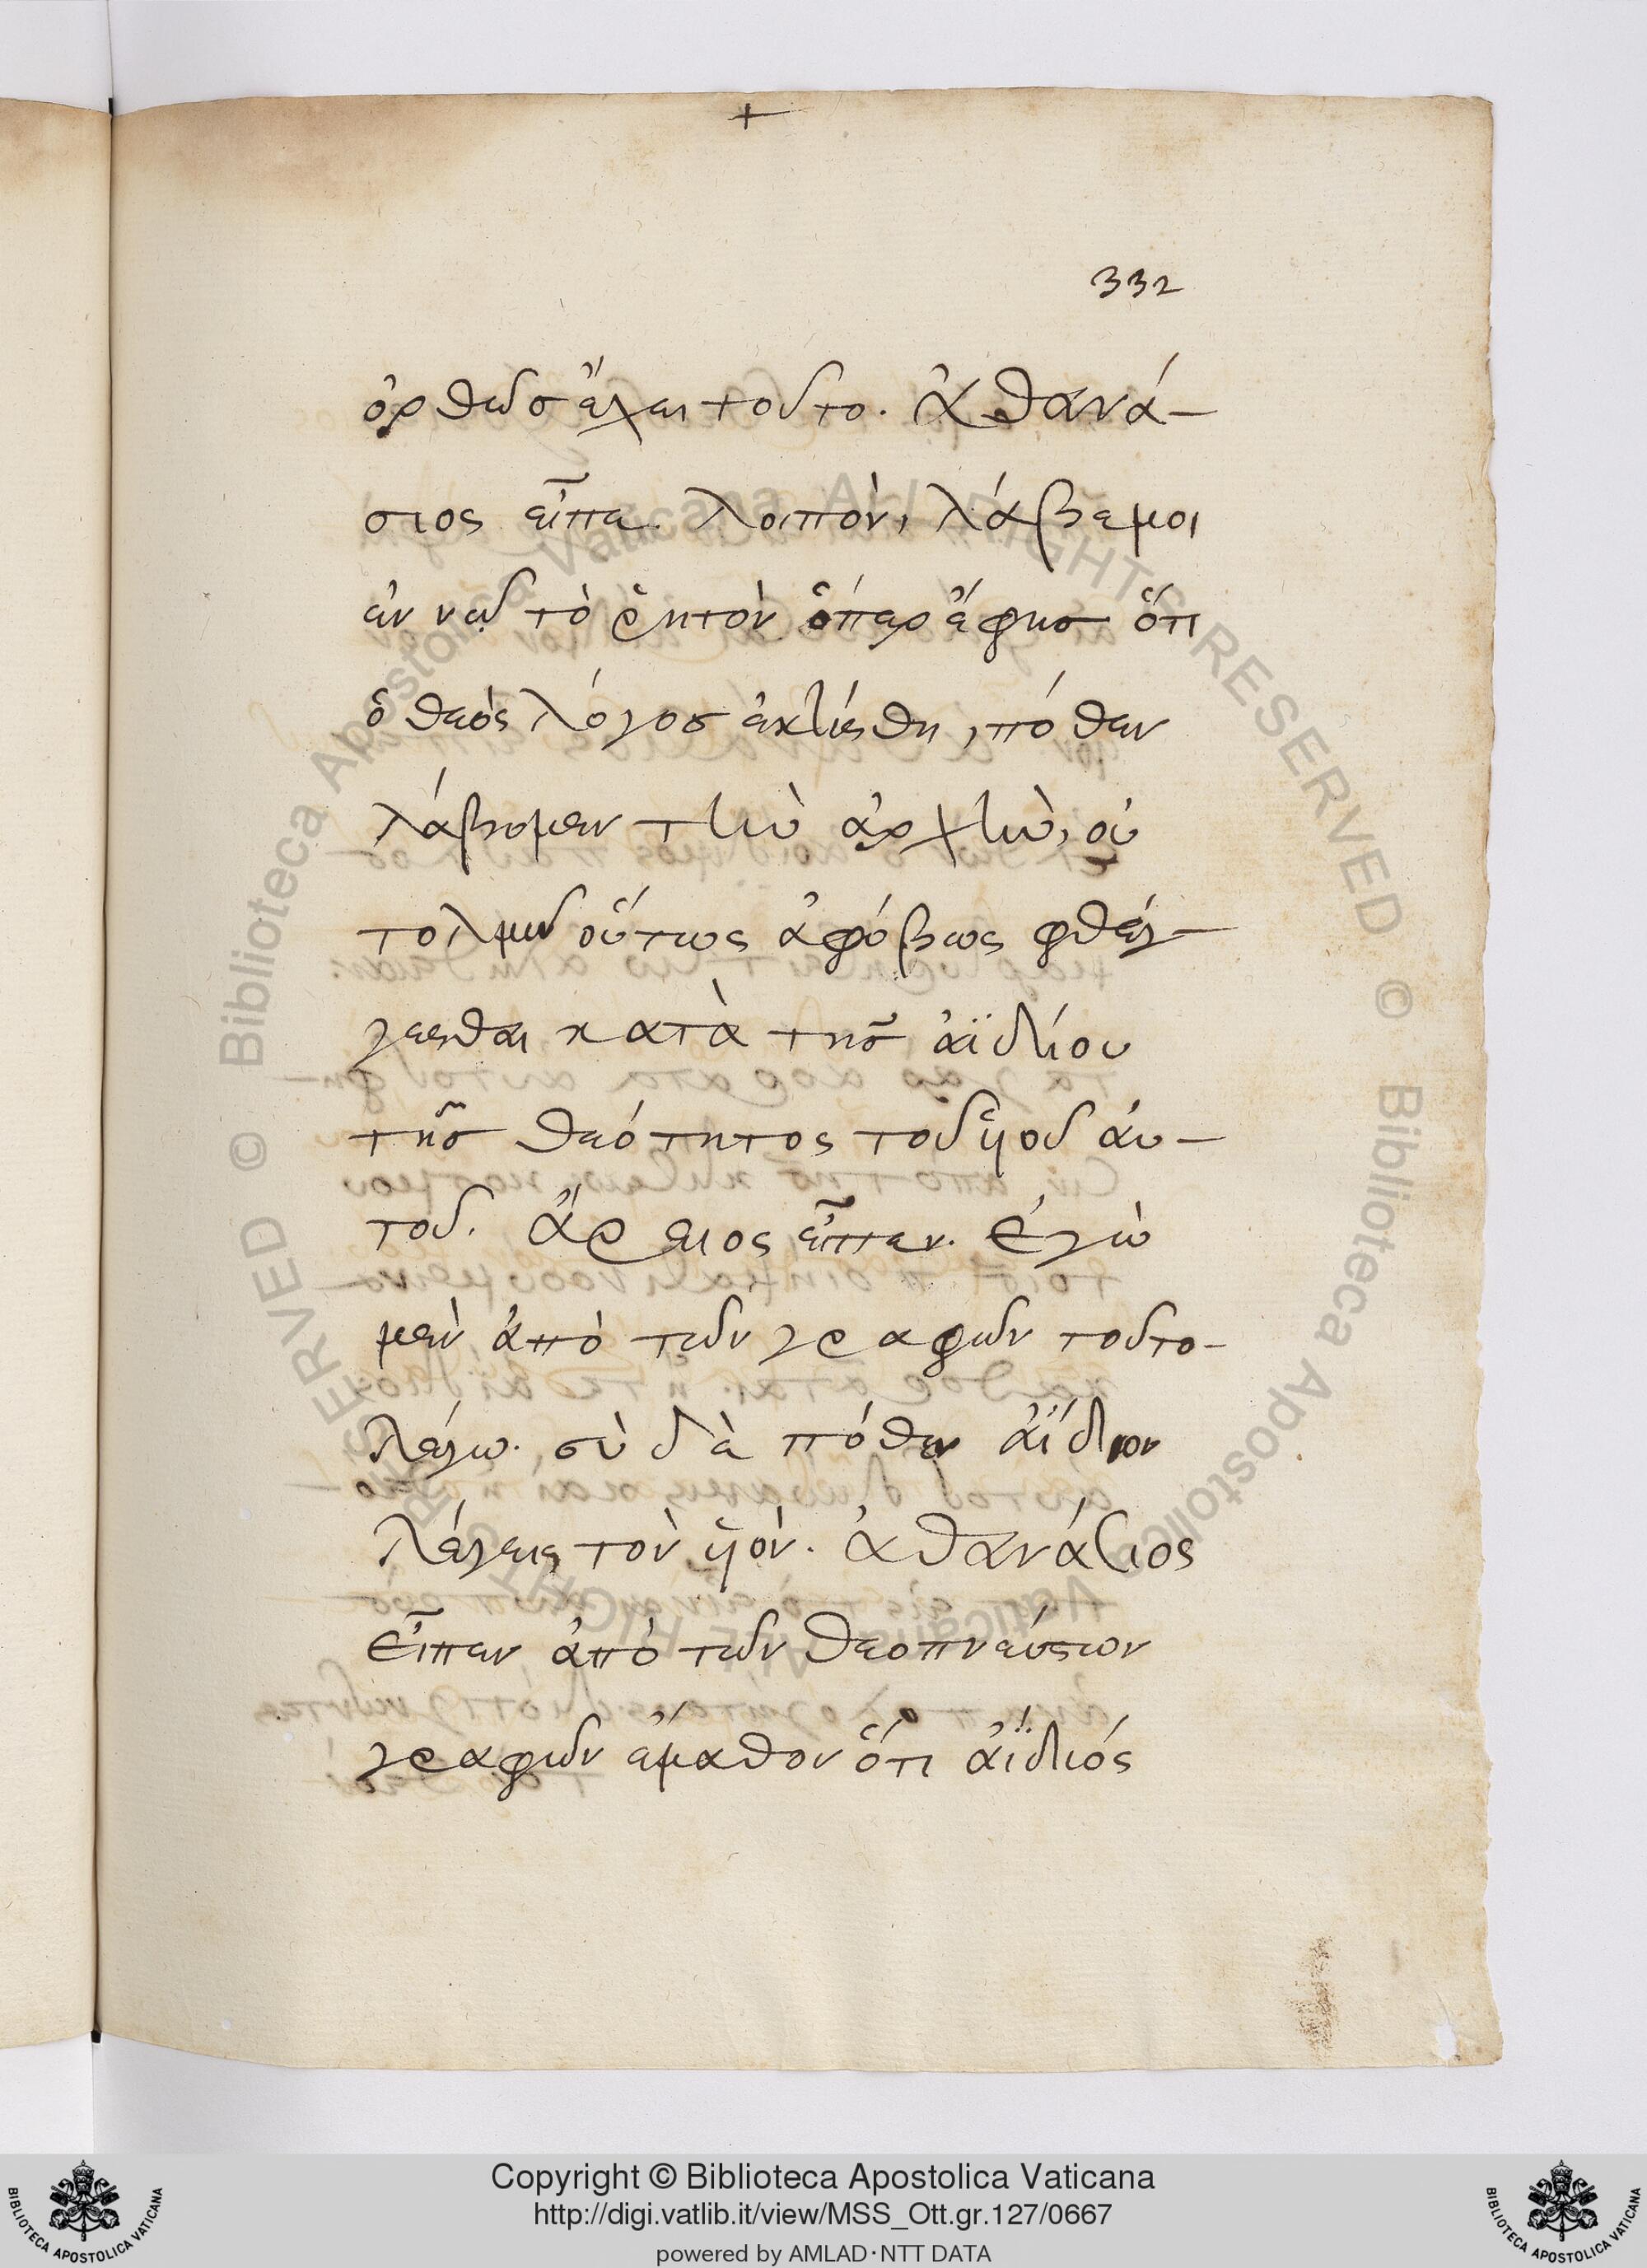 +
332
ὀρθῶσ ἔχει τοῦτο. Ἀθανά-
σιος εἶπε. λοιπὸν, λάβε μοι
ἐν νῷ τὸ ῥητὸν ὅπερ ἔφησ ὅτι
ὁ θεὸς λόγοσ ἐκτίσθη, πόθεν
λάβωμεν τὴν ἀρχὴν, οὐ
τολμῶ οὕτως ἀφόβως φθέγ-
γεσθαι κατὰ τῆσ ἀϊδίου
τῆσ θεότητος τοῦ ὑιοῦ ἀυ-
τοῦ. Ἄρειος εἶπεν. Ἐγὼ
μὲν ἀπὸ τῶν γραφῶν τοῦτο-
λέγω. σὺ δὲ πόθεν ἀΐδιον
λέγεις τὸν ὑιὸν. ἀθανάσιος
Εἶπεν ἀπὸ τῶν θεοπνεύστων
γραφῶν ἔμαθον ὅτι ἀΐδιός
© Biblioteca Apostolica Vaticana ALL RIGHTS RESERVED © Biblioteca Apostolica Vaticana ALL RIGHTS RESERVED
Copyright © Biblioteca Apostolica Vaticana
http://digi.vatlib.it/view/MSS_Ott.gr.127/0667
powered by AMLAD·NTT DATA
BIBLIOTECA APOSTOLICA VATICANA
BIBLIOTECA APOSTOLICA VATICANA